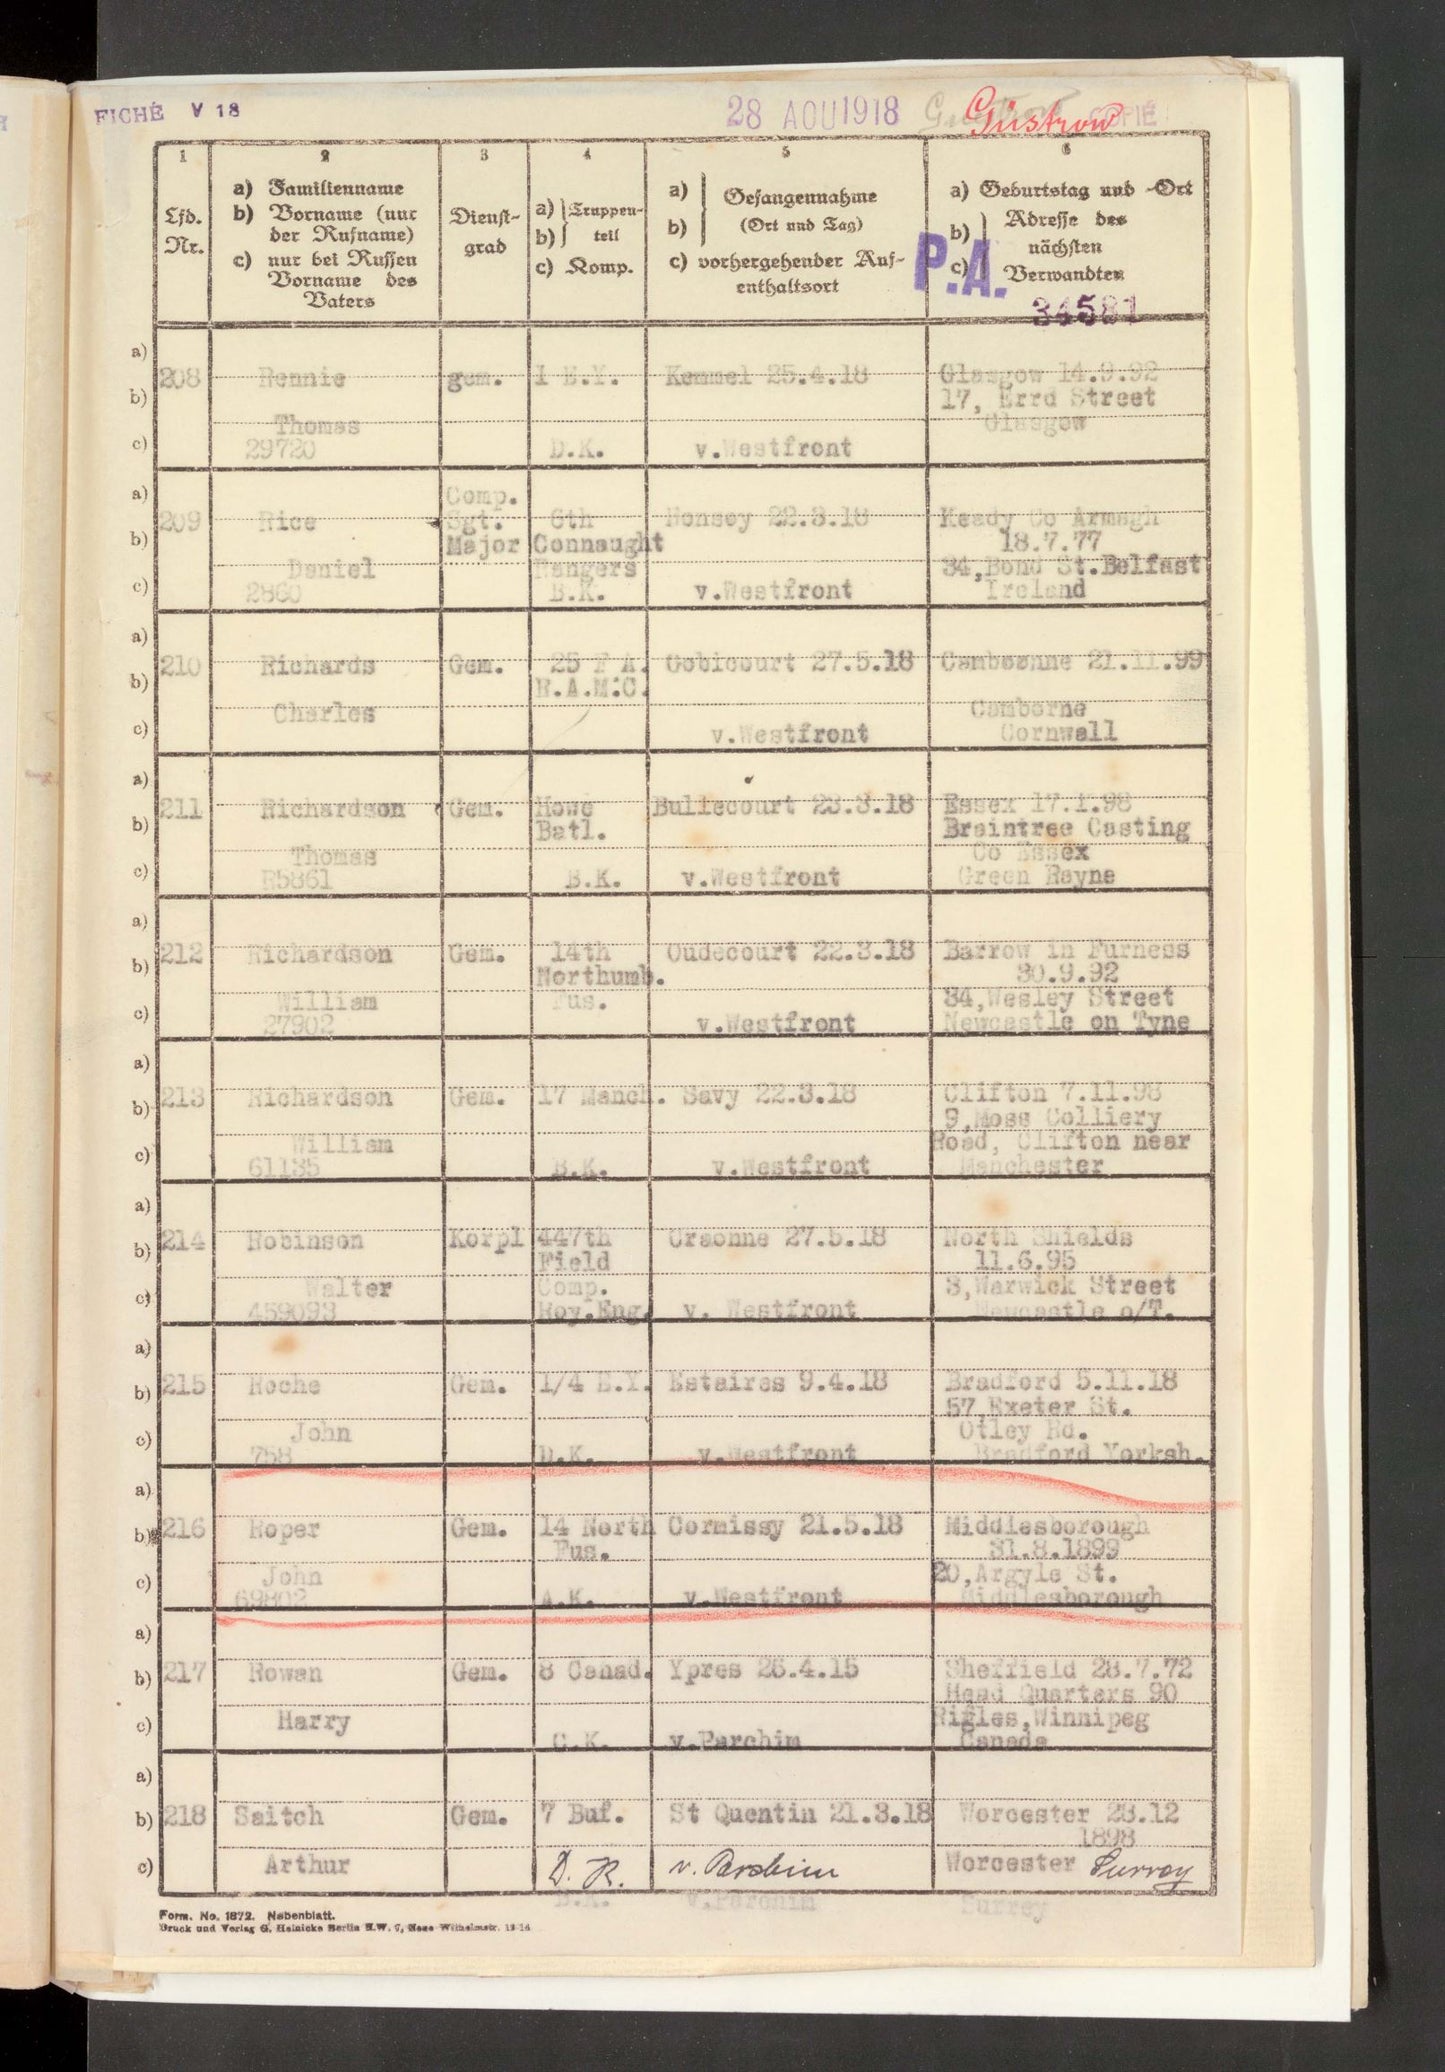 FICHÉ V 18
28 AOU 1918
Güstrow
COPIÉ
1 2 3 4 5 6
Lfd. Nr.
a) Familienname
b) Vorname (nur der Rufname)
c) nur bei Russen Vorname des Vaters
Dienst-
grad
a) Truppen-
b) teil
c) Komp.
a) Gefangennahme
b) (Ort und Tag)
c) vorhergehender Auf-
enthaltsort
a) Geburtstag und -Ort
b) Adresse des
nächsten
c) Verwandten
P.A.
34581
a)
208 Rennie gem. 1 E.Y. Kemmel 25.4.18 Glasgow 14.9.92
b) 17, Errd Street
Thomas Glasgow
c) 29720 D.K. v.Westfront
a) Comp.
209 Rice Sgt. 6th 22.3.18 Keady Co Armagh
b) Major Connaught 18.7.77
Daniel Rangers 34,Bond St.Belfast
c) 2860 B.K. v.Westfront Ireland
a)
210 Richards Gem. 25 F A. Gobicourt 27.5.18 Camboenne 21.11.99
b) R.A.M.C.
Charles Camborne
c) v.Westfront Cornwall
a)
211 Richardson Gem. Howe Bullecourt 23.3.18 Essex 17.1.98
b) Batl. Braintree Casting
Thomas Co Essex
c) R5861 B.K. v.Westfront Green Rayne
a)
212 Richardson Gem. 14th Oudecourt 22.3.18 Barrow in Furness
b) Northumb. 30.9.92
William Fus. 34,Wesley Street
c) 27902 v.Westfront Newcastle on Tyne
a)
213 Richardson Gem. 17 Manch. Savy 22.3.18 Clifton 7.11.98
b) 9,Moss Colliery
William Road, Clifton near
c) 61135 B.K. v.Westfront Manchester
a)
214 Robinson Korpl 447th Craonne 27.5.18 North Shields
b) Field 11.6.95
Walter Comp. 3,Warwick Street
c) 459093 Roy.Eng. v. Westfront Newcastle o/T.
a)
215 Roche Gem. 1/4 E.Y. Estaires 9.4.18 Bradford 5.11.18
b) 57,Exeter St.
John Otley Rd.
c) 758 D.K. v.Westfront Bradford Yorksh.
a)
216 Roper Gem. 14 North Cormissy 21.5.18 Middlesborough
b) Fus. 31.8.1899
John 20,Argyle St.
c) 69802 A.K. v.Westfront Middlesborough
a)
217 Rowan Gem. 8 Canad. Ypres 26.4.15 Sheffield 28.7.72
b) Head Quarters 90
Harry Rifles,Winnipeg
c) C.K. v.Parchim Canada
a)
218 Saitch Gem. 7 Buf. St Quentin 21.3.18 Worcester 23.12
b) 1898
c) Arthur D. K. v. Parchim Worcester Surrey
D.K. v.Parchim Surrey
Form. No. 1872. Nebenblatt.
Druck und Verlag G. Heinicke Berlin N.W. 7, Neue Wilhelmstr. 12-14